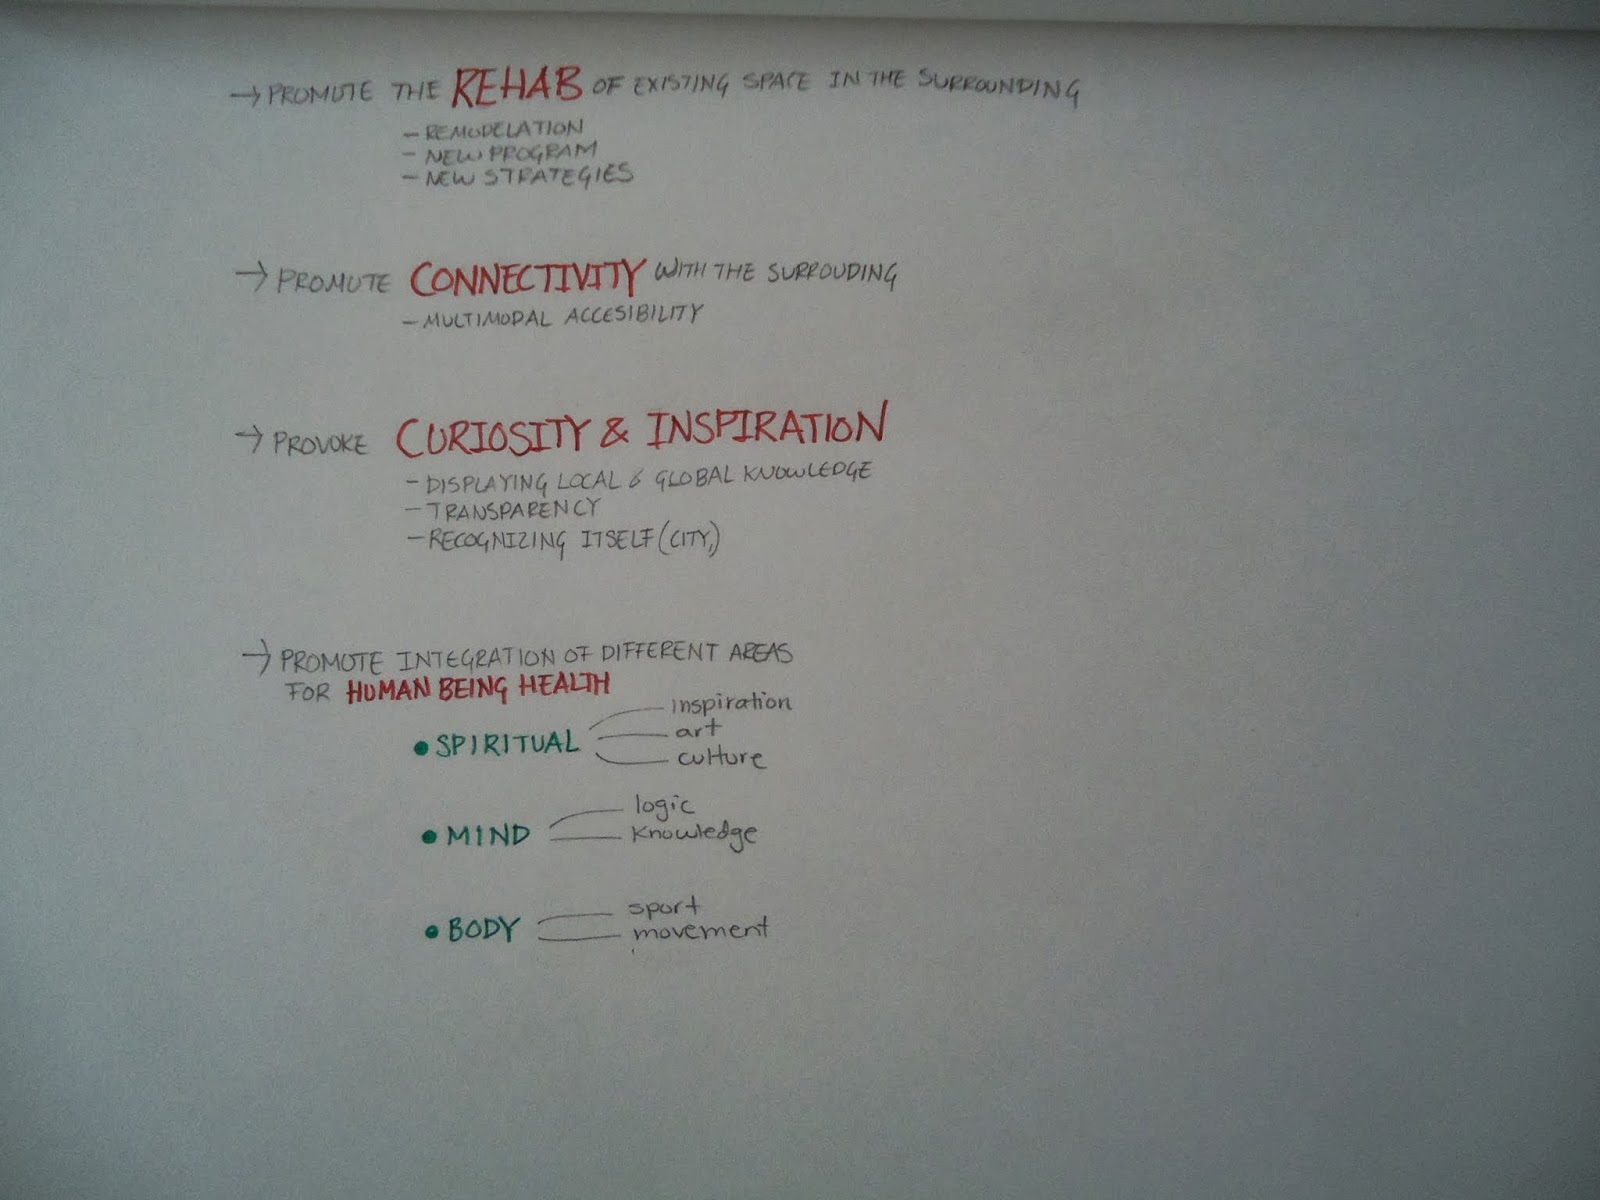 → PROMOTE THE REHAB OF EXISTING SPACE IN THE SURROUNDING
- REMODELATION
- NEW PROGRAM
- NEW STRATEGIES
→ PROMOTE CONNECTIVITY WITH THE SURROUDING
- MULTIMODAL ACCESIBILITY
→ PROVOKE CURIOSITY & INSPIRATION
- DISPLAYING LOCAL & GLOBAL KNOWLEDGE
- TRANSPARENCY
- RECOGNIZING ITSELF (CITY,)
→ PROMOTE INTEGRATION OF DIFFERENT AREAS
FOR HUMAN BEING HEALTH
inspiration
• SPIRITUAL art
culture
logic
• MIND knowledge
sport
• BODY movement